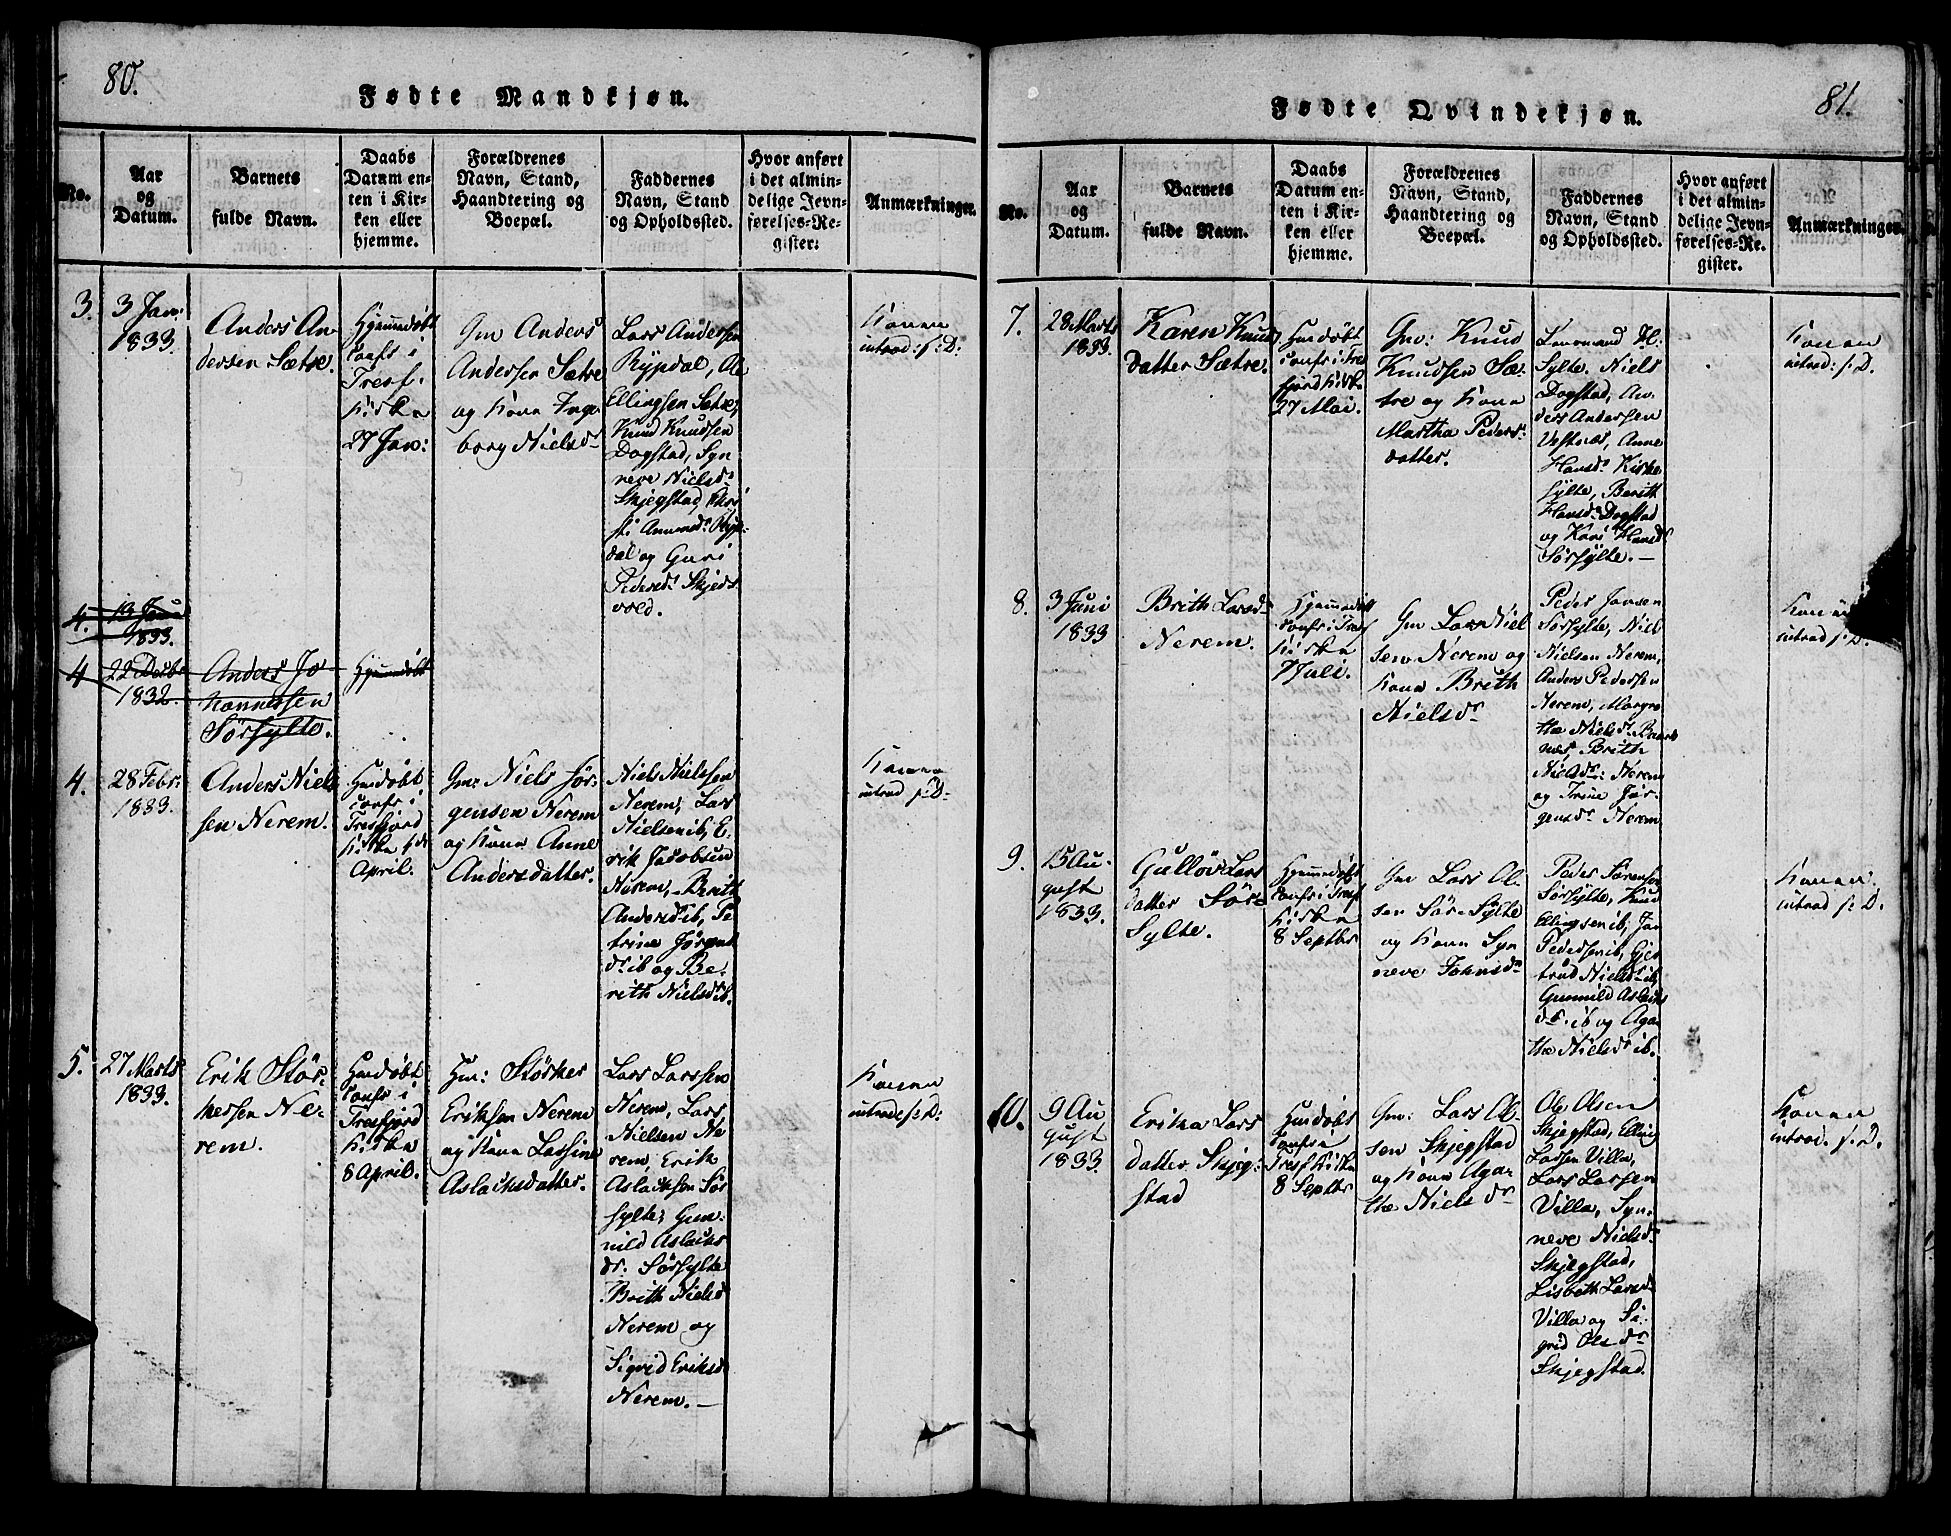 80.
Fødte Mandkjøn.
No.
Aar
og
Datum.
Barnets
fulde Navn.
Daabs
Datum en-
ten i Kir-
ken eller
hjemme.
Forældrenes
Navn, Stand,
Haandtering og
Boepæl.
Faddernes
Navn, Stand
og Opholdssted.
Hvor anført
i det almin-
delige Jevn-
førelses-Re-
gister.
Anmærkninger.
3.
3 Jan:
1833.
Anders An
dersen Sætre.
Hjemmedøbt
confs i
Tresf.
Kirke
27 Jan:
Gm Anders
Andersen Sætre
og Kone Inge
borg Nielsdr
Lars Andersen
Rypdal, Ole
Ellingsen Sætre,
Knud Knudsen
Dogstad, Syn
neve Nielsdr
Skjegstad,
dal og Guri
Pedersdr Skjeds
vold.
Konen
introd: s: D:
4.
13 Jan
1833.
4
22 Decbr
1832.
Anders Jo
hannessen
Sørsylte.
Hjemmedøbt
4.
28 Febr.
1833.
Anders Niel
sen Nerem.
Hmdøbt
confs i
Tresfjord
Kirke
April.
Gm: Niels Jør
gensen Nerem
og Kone Anne
Andersdatter.
Niels Nielsen
Nerem, Lars
Nielsen ib, E.
rik Jacobsen
Nerem, Berith
Andersd ib, Pe
trine Jørgens
dr ib og Be.
rith Nielsdr ib.
Konen
introd s: D:
5.
27 Marts
1833.
Erik Stör.
kersen Ne-
rem.
Hmdøbt
confs i
Tresfjord
Kirke
8 April.
Gm: Störker
Eriksen Nerem
og Kone Lassine
Aslaksdatter.
Lars Larsen
Nerem, Lars
Nielsen Ne
rem, Erik
Aslacksen Sör
sylte, Gun.
nild Aslacks
dr. Sörsylte
Brith Nielsd
Nerem og
Sigrid Eriksd
Nerem. —
Konen
introd s: D:
81.
Fødte Qvindekjøn.
No.
Aar
og
Datum.
Barnets
fulde Navn.
Daabs
Datum en-
ten i Kir-
ken eller
hjemme.
Forældrenes
Navn, Stand,
Haandtering og
Boepæl.
Faddernes
Navn, Stand
og Opholdssted.
Hvor anført
i det almin-
delige Jevn-
førelses-Re-
gister.
Anmærkninger.
7.
28 Marts
1833.
Karen Knud
datter Sætre.
Hmdøbt
confs i Tres
fjord Kirke
27 Mai.
Gm: Knud
Knudsen Sæ.
tre og Kone
Martha Peders:
datter.
Lensmand H.
Sylte, Niels
Dogstad, An
ders Andersen
Vestnæs, Anne
Hansdr Kirke
sylte, Berith
Hansdr Dogstad
og Kari Hansdr
Sörsylte. —
Konen
introd: s: D.
8.
3 Juni
1833
Brith Larsd
Nerem.
Hjemmedøbt
confs i Tresf
Kirke
7 Juli.
Gm Lars Niel
sen Nerem og
Kone Brith
Nielsdr
Peder Jansen
Sörsylte, Niels
Nielsen Nerem,
Anders Pedersen
Nerem, Margre
the Nielsdr
Brith
Nielsdr: Nerem
og Trine Jör.
gensdr Nerem.
introd s: D.
9.
15 Au.
gust
1833.
Gulløv Lars
datter Sör-
Sylte.
Hjemmedøbt
confs i Tresf
Kirke
8 Septbr
Gm Lars Ol.
sen Sör-Sylte
og Kone Syn
neve Johnsdr
Peder Sörensen
Sörsylte, Knud
Ellingsen ib, Jan
Pedersen ib, Gjer
trud Nielsdr ib,
Gunnild Aslacks
dr. ib og Aga-
the Nielsdr ib.
Konen.
introd s: D.
10.
9 Au
gust
1833.
Erika Lars
datter Skjeg:
stad
Hmdøbt
confs i
Tresf Kirke
8 Septbr
Gm: Lars Ol.
sen Skjegstad
og Kone Aga-
the Nielsdr
Ole Olsen
Skjegstad, Elling
Larsen Villa,
Lars Larsen
Villa, Syn.
neve Nielsdr
Skjegstad,
Lisbeth Larsd
Villa og Si.
grid Olsdr
Skjegstad.
Konen
introd. s: D.